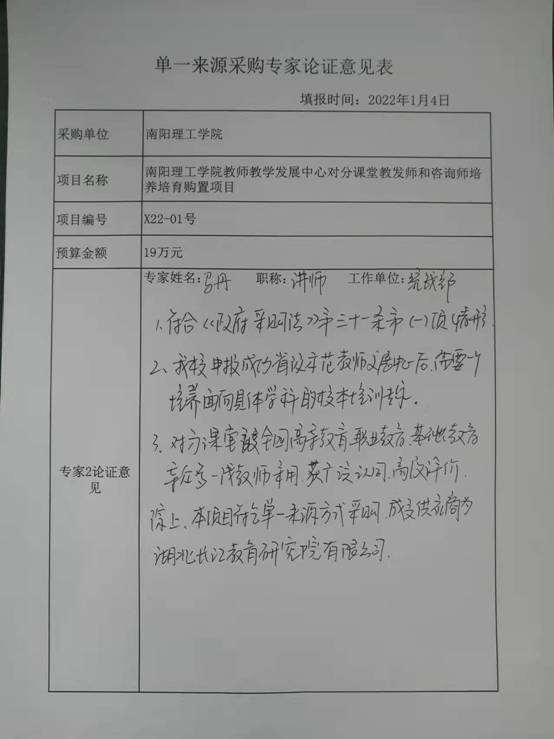 单一来源采购专家论证意见表
填报时间：2022年1月4日
采购单位 南阳理工学院
项目名称 南阳理工学院教师教学发展中心对分课堂教发师和咨询师培
养培育购置项目
项目编号 X22-01号
预算金额 19万元
专家2论证意
见
专家姓名:马丹 职称:讲师 工作单位:统战部
1.符合《政府采购法》第三十一条第(一)项情形.
2、我校申报成功省级示范教师发展中心后,需要
培养面向具体学科的校本培训
3.对分课堂被全国高等教育、职业教育、基础教育
一线教师采用,获广泛认同,高度评价.
综上、本项目符合单一来源方式采购,成交供应商为
湖北长江教育研究院有限公司.